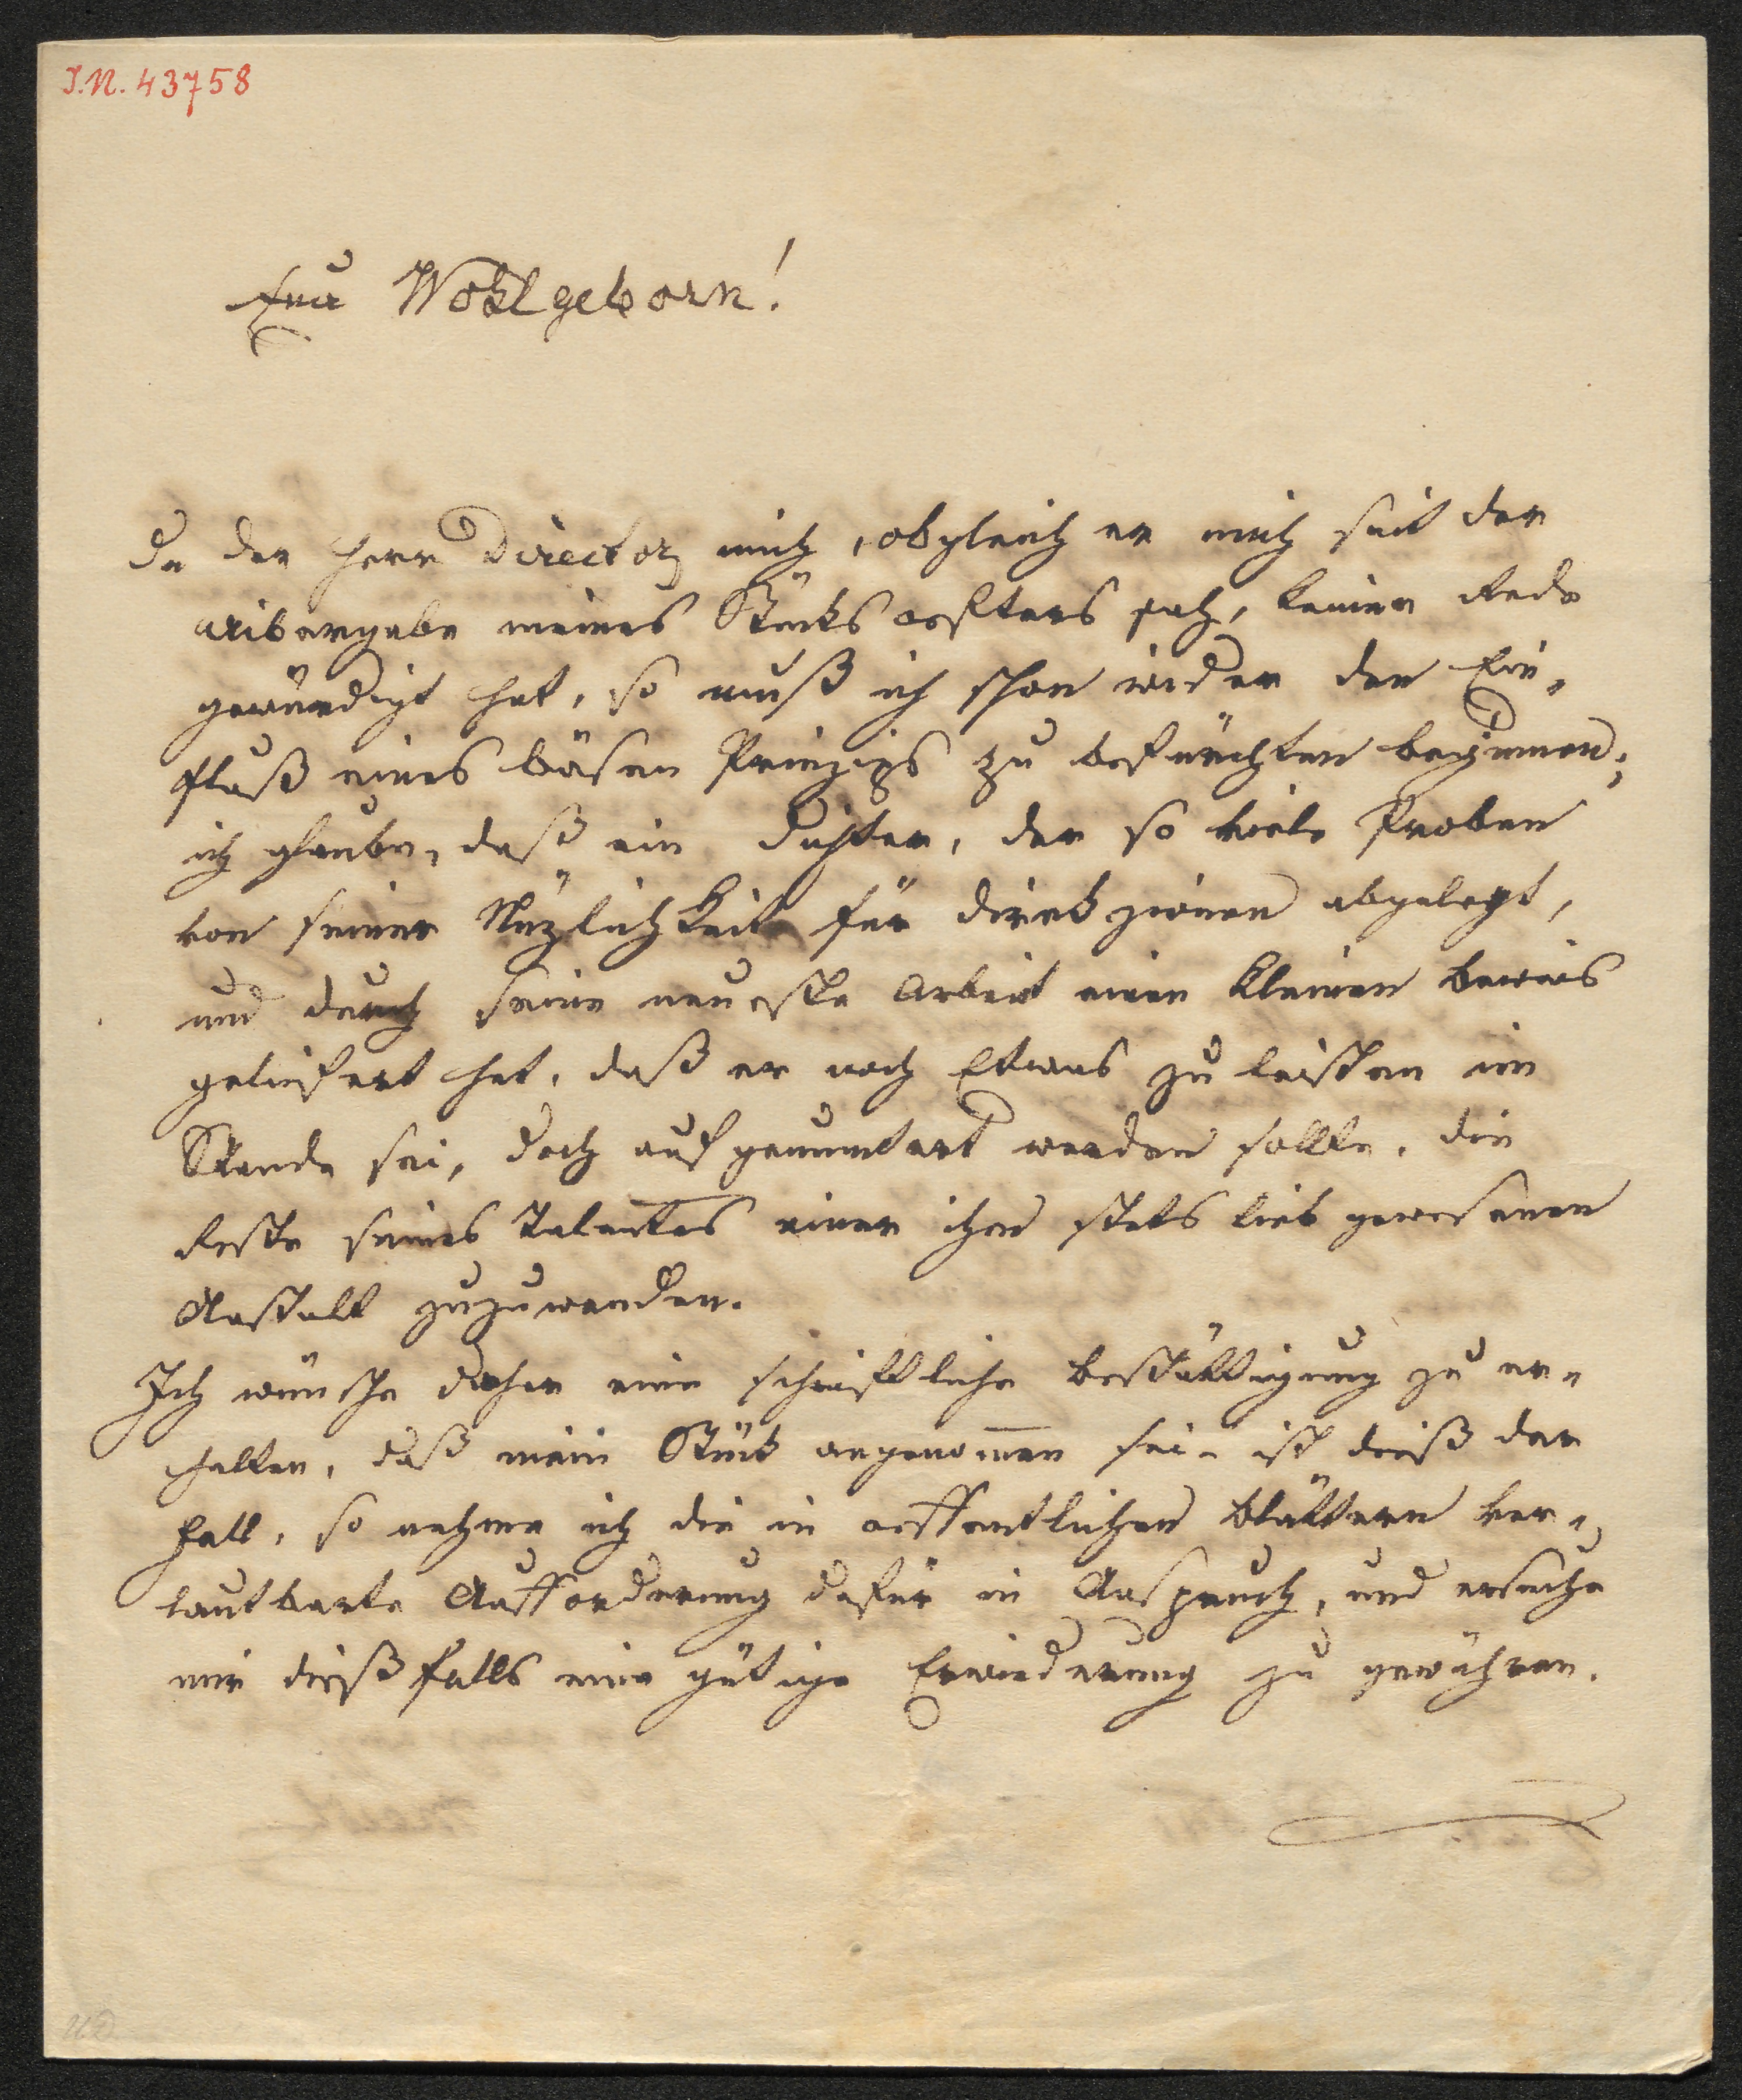 I.N. 43758
Euer Wohlgeborn!
Da der Herr Director mich, obgleich er mich seit der
Uibergabe meines Stücks oefters sah, keiner Rede
gewürdigt hat, so muß ich schon wieder den Ein-
fluß eines bösen Prinzips zu befürchten beginnen;
ich glaube, daß ein Dichter, der so viele Proben
von seiner Nüzlichkeit für Direkzionen abgelegt,
und durch seine neueste Arbeit einen kleinen Beweis
geliefert hat, daß er noch Etwas zu leisten im
Stande sei, doch aufgemuntert werden sollte, die
Reste seines Talentes einer ihm stets lieb gewesenen
Anstalt zuzuwenden.
Ich wünsche daher eine schriftliche Bestättigung zu er-
halten, daß mein Stück angenom̄en sei. ist dieß der
Fall, so nehme ich die in oeffentlichen Blättern ver-
lautbarte Aufforderung dafür in Anspruch, und ersuche
mir dießfalls eine gütige Erwiederung zu gewähren.